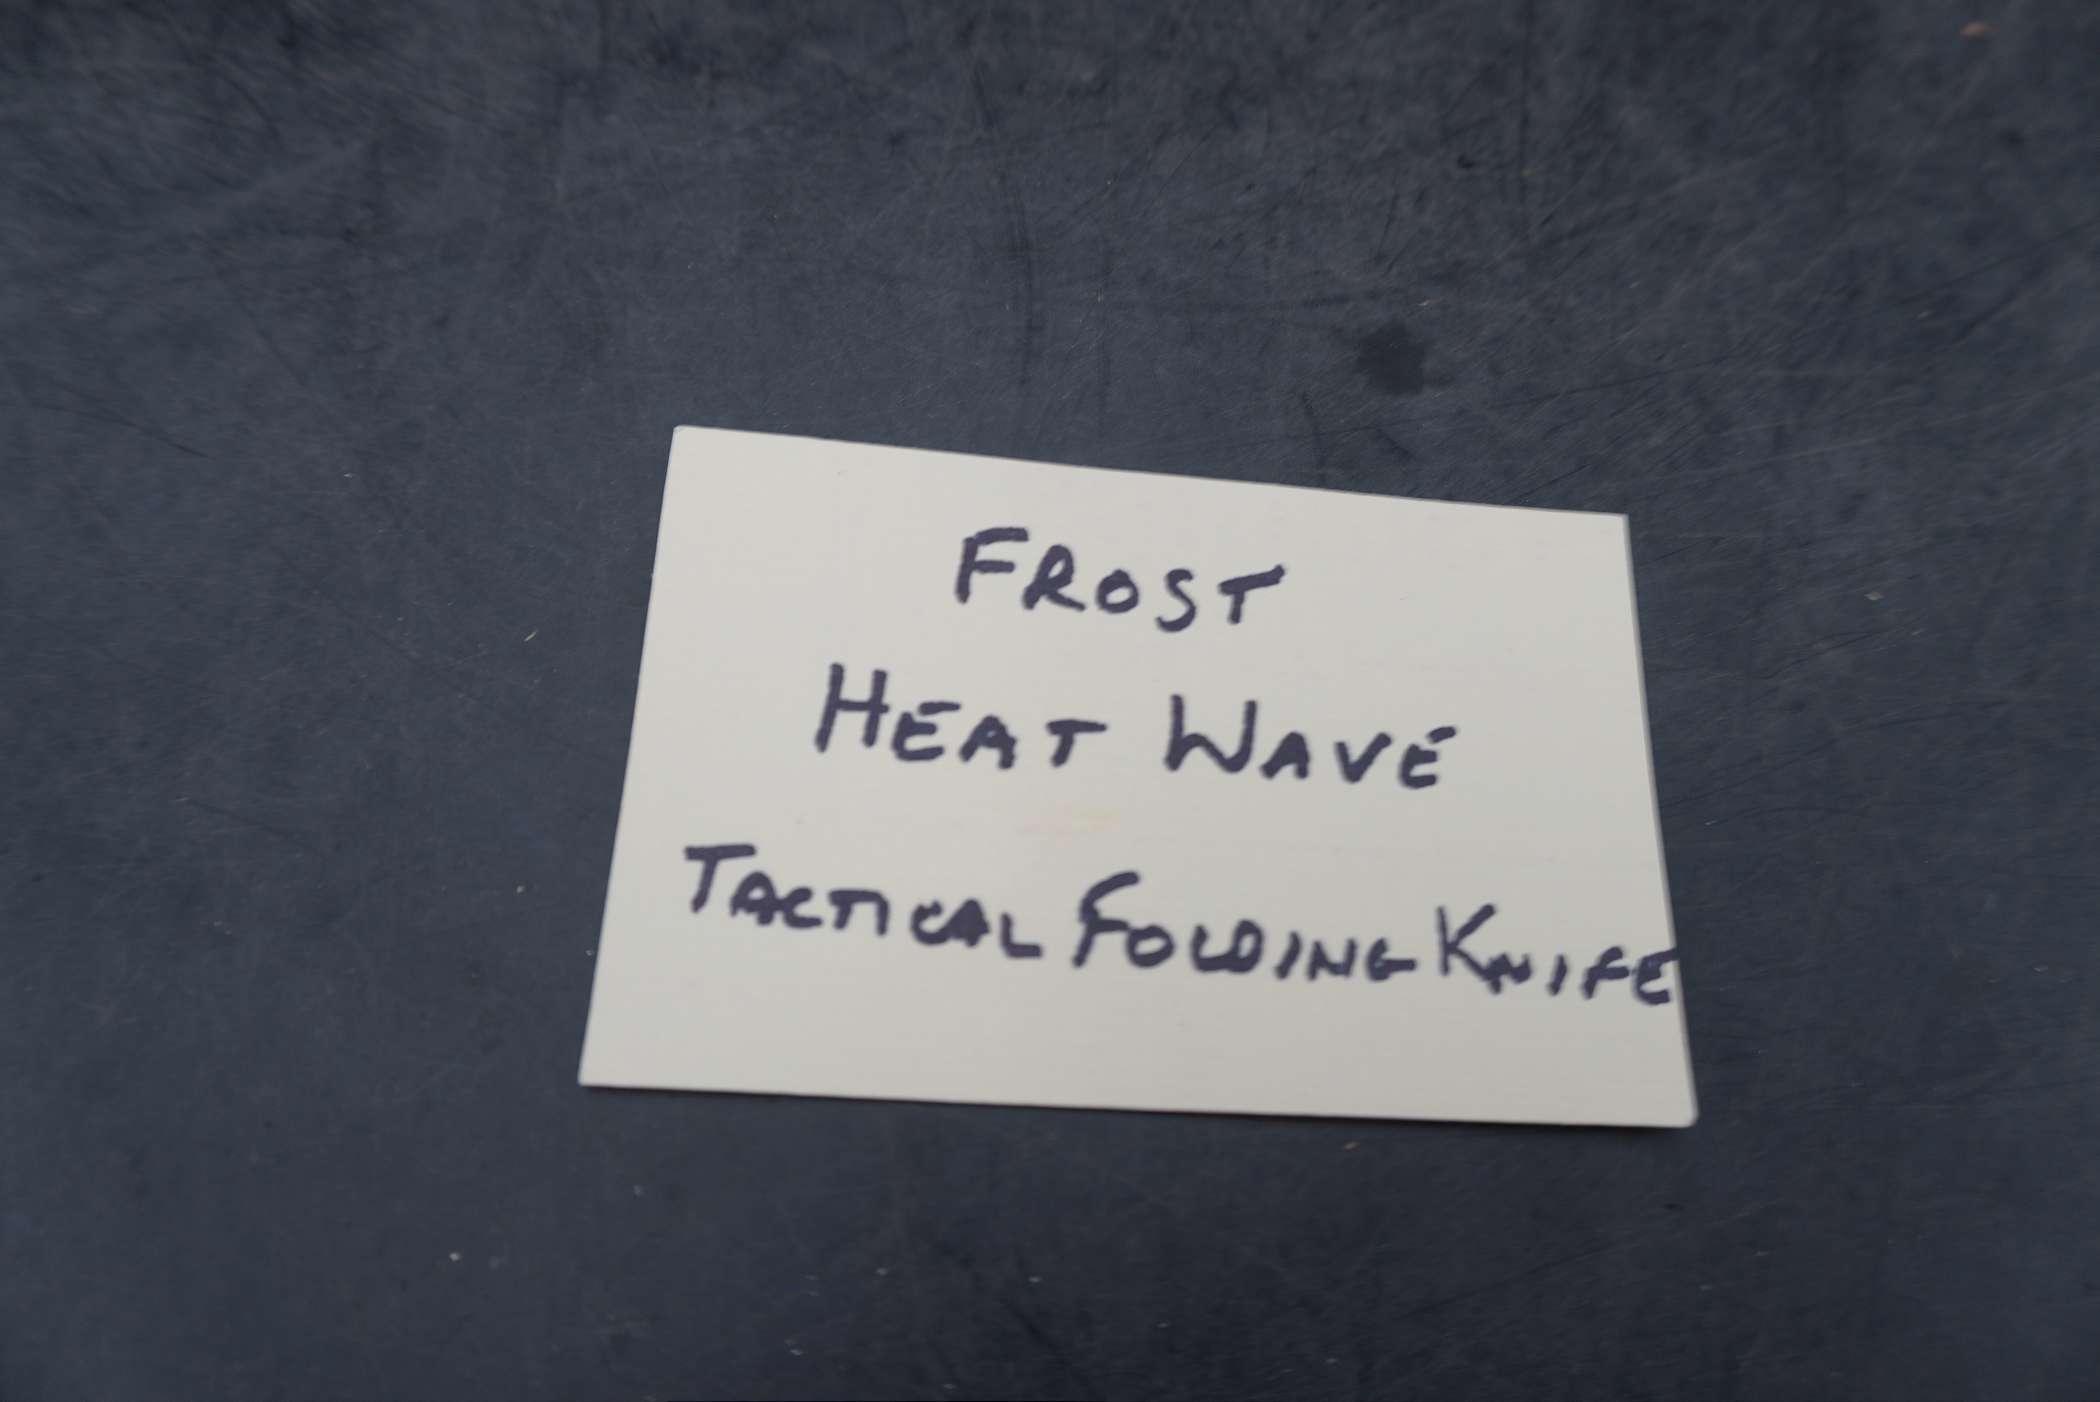 FROST
HEAT WAVE
TACTICAL FOLDING KNIFE